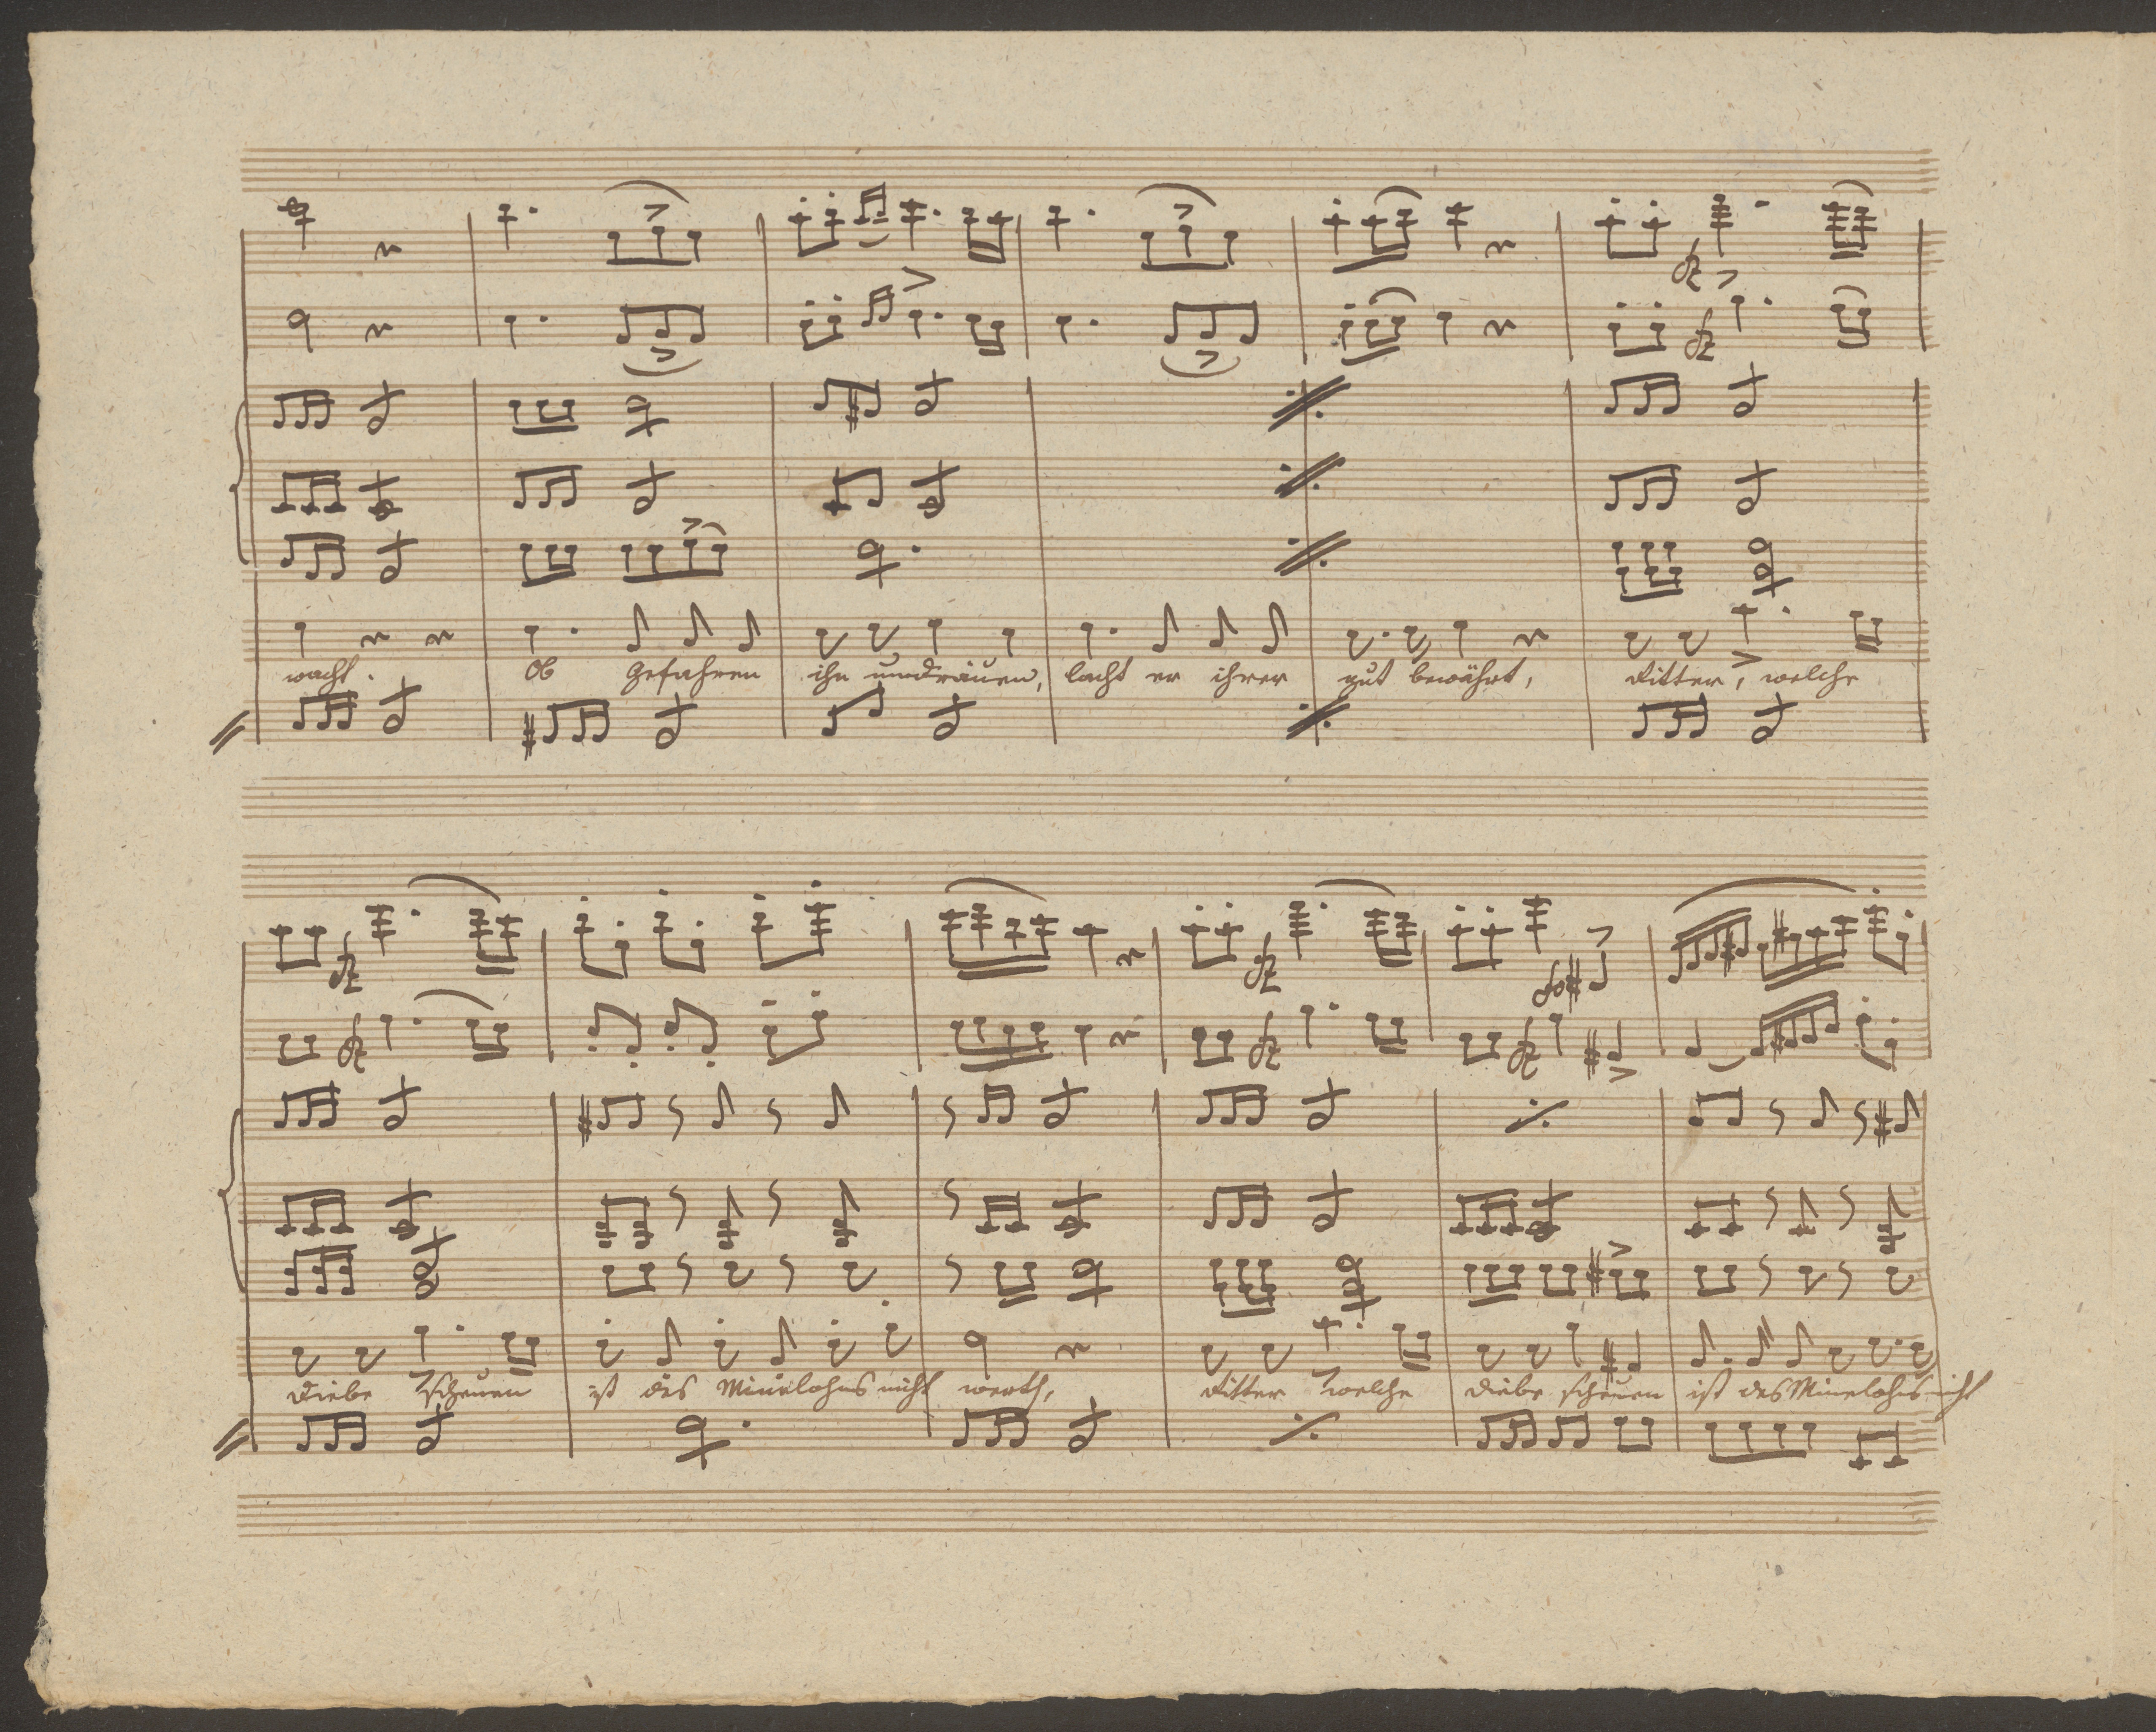 wacht. Ob Gefahren ihn umdräuen, lacht er ihrer gut bewährt, Ritter, welche
Diebe scheuen ist des Minelohns nicht werth, Ritter welche Diebe scheuen ist des Minelohns nicht